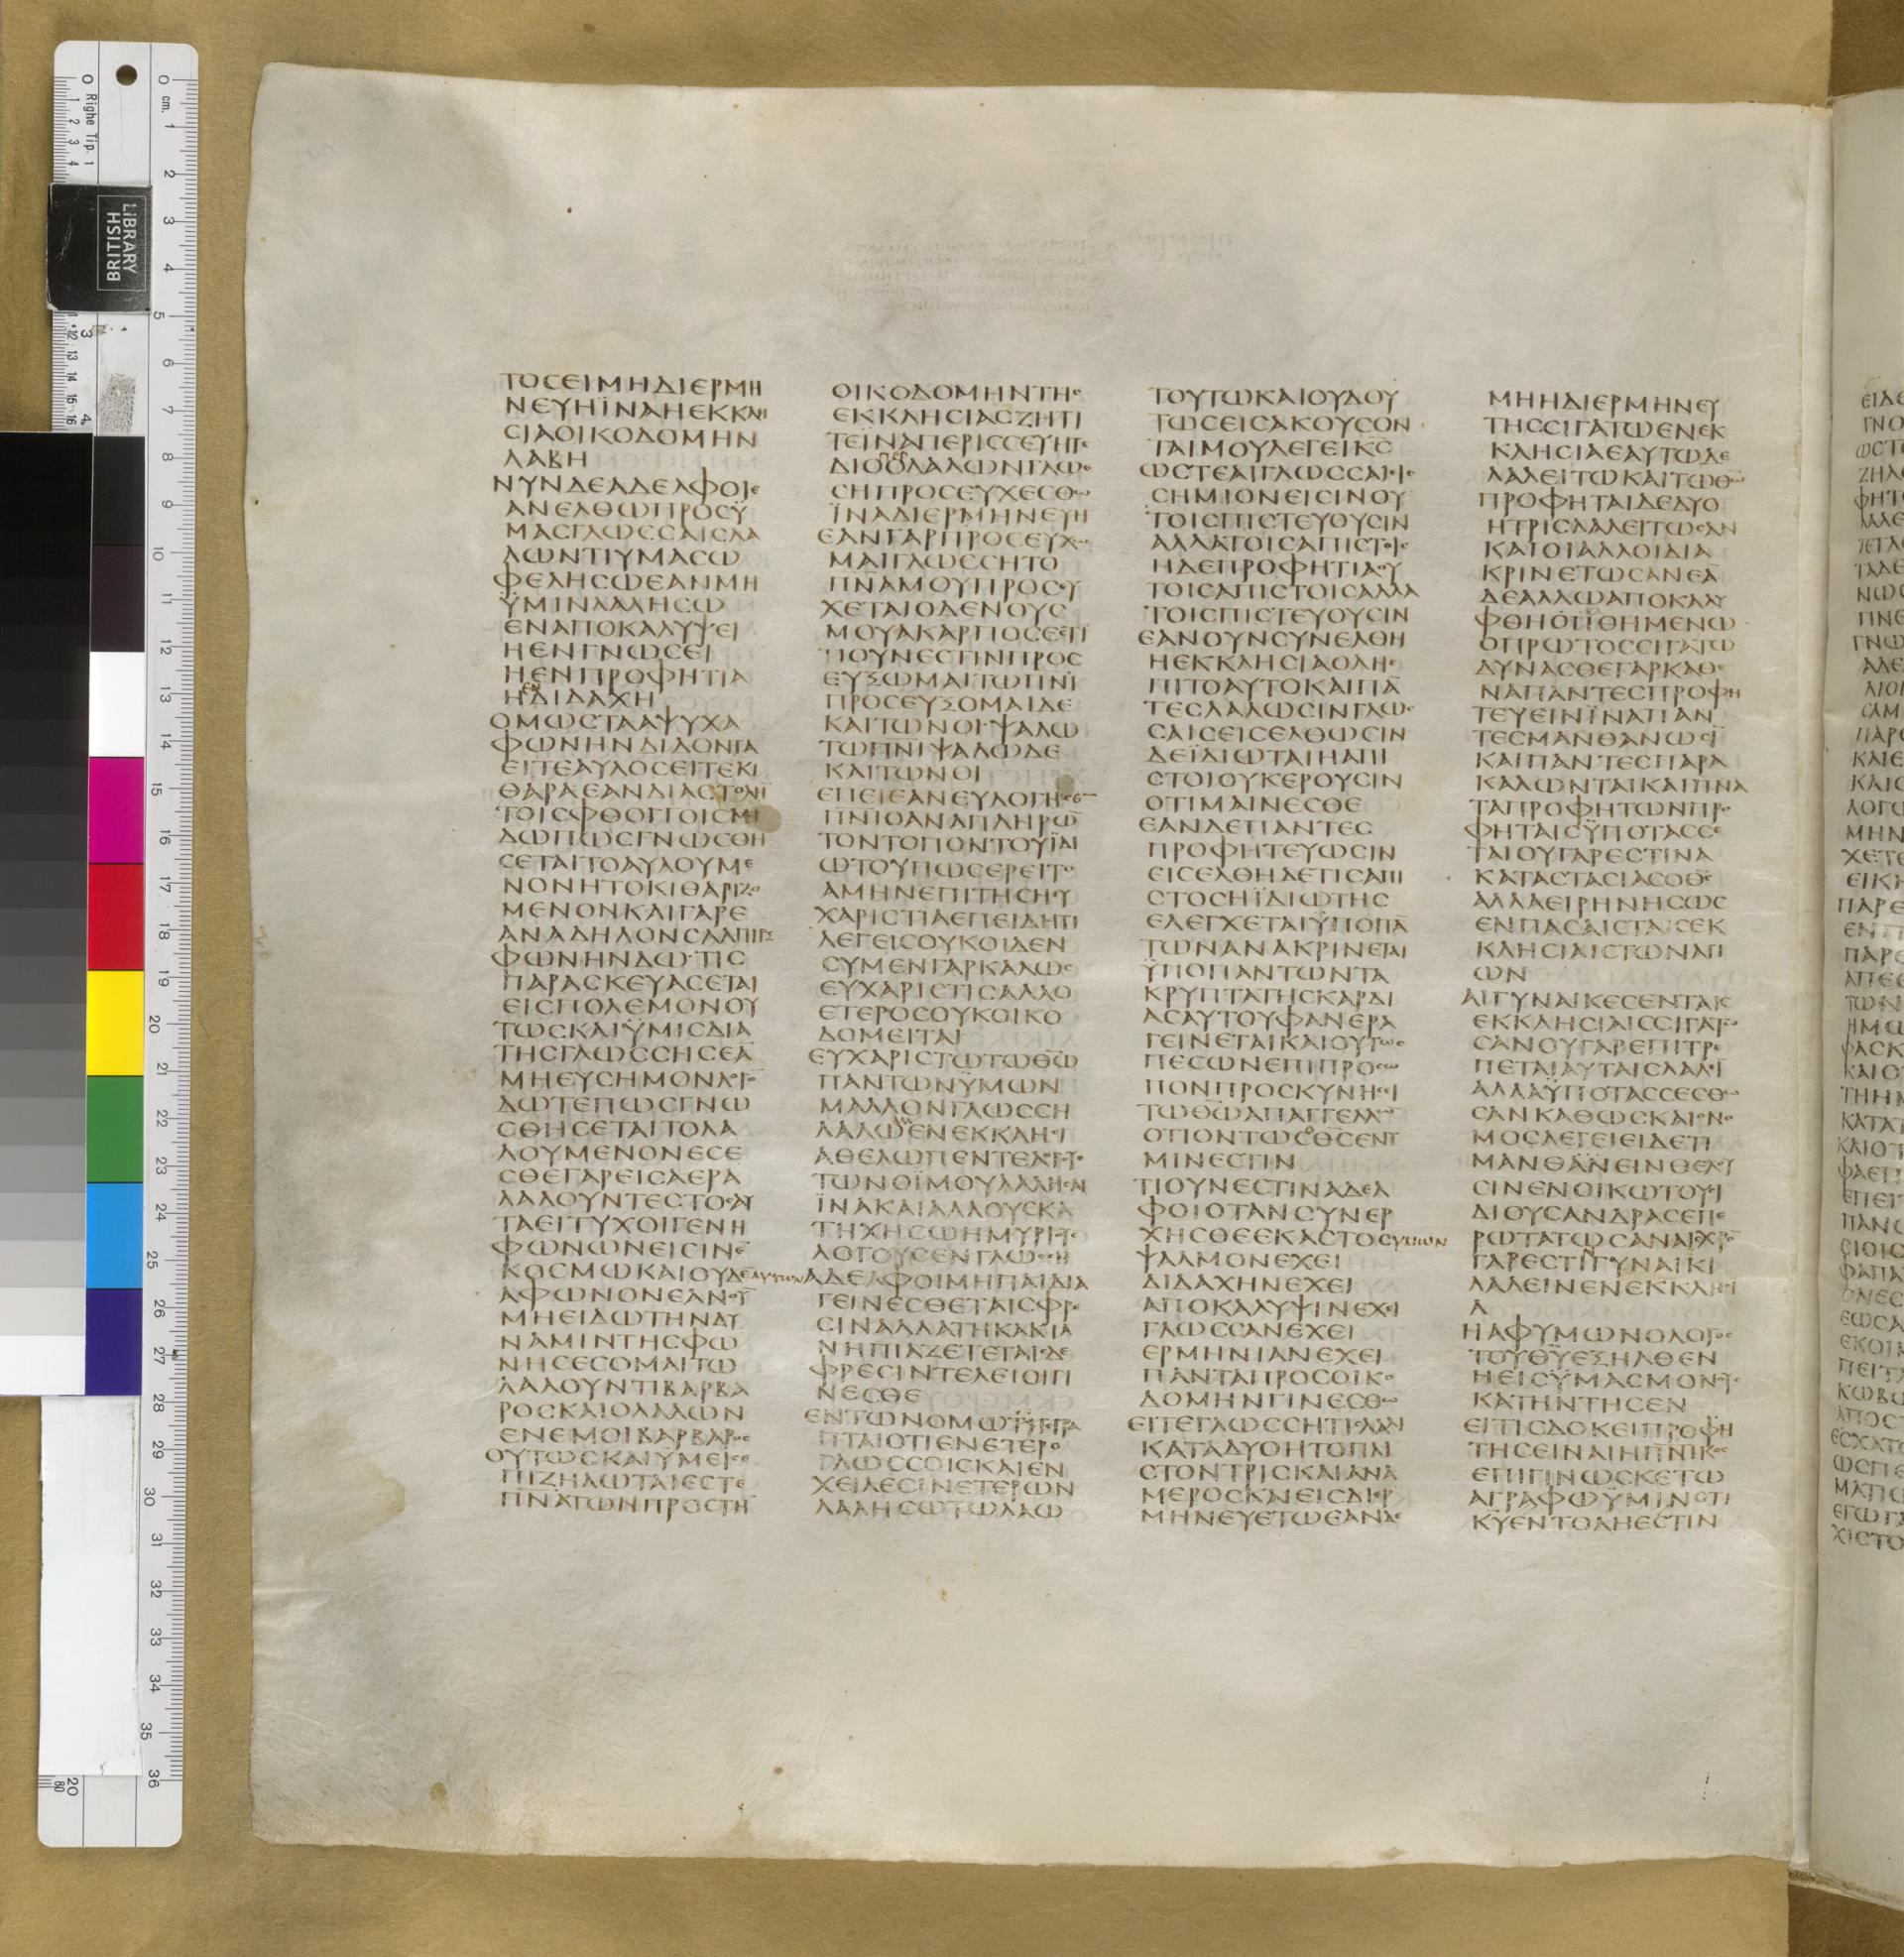 ΤΟCΕΙΜΗΔΙΕΡΜΗ
ΝΕΥΗΪΝΑΗΕΚΚΛΗ
CΙΑΟΙΚΟΔΟΜΗΝ
ΛΑΒΗ
ΝΥΝΔΕΑΔΕΛΦΟΙΕ
ΑΝΕΛΘΩΠΡΟCΫ
ΜΑCΓΛΩCCΑΙCΛΑ
ΛΩΝΤΙΥΜΑCΩ
ΦΕΛΗCΩΕΑΝΜΗ
ΫΜΙΝΛΑΛΗCΩ
ΕΝΑΠΟΚΑΛΥΨΕΙ
ΗΕΝΓΝΩCΕΙ
ΗΕΝΠΡΟΦΗΤΙΑ
ΗΕΝΔΙΔΑΧΗ
ΟΜΩCΤΑΑΨΥΧΑ
ΦΩΝΗΝΔΙΔΟΝΤΑ
ΕΙΤΕΑΥΛΟCΕΙΤΕΚΙ
ΘΑΡΑΕΑΝΔΙΑCΤΟΛΗ
ΤΟΙCΦΘΟΓΓΟΙCΜΗ
ΔΩΠΩCΓΝΩCΘΗ
CΕΤΑΙΤΟΑΥΛΟΥΜΕ
ΝΟΝΗΤΟΚΙΘΑΡΙΖΟ
ΜΕΝΟΝΚΑΙΓΑΡΕ
ΑΝΑΔΗΛΟΝCΑΛΠΙΓΞ
ΦΩΝΗΝΔΩΤΙC
ΠΑΡΑCΚΕΥΑCΕΤΑΙ
ΕΙCΠΟΛΕΜΟΝΟΥ
ΤΩCΚΑΙΫΜΙCΔΙΑ
ΤΗCΓΛΩCCΗCΕΑ̅
ΜΗΕΥCΗΜΟΝΛΟΓΟ̅
ΔΩΤΕΠΩCΓΝΩ
CΘΗCΕΤΑΙΤΟΛΑ
ΛΟΥΜΕΝΟΝΕCΕ
CΘΕΓΑΡΕΙCΑΕΡΑ
ΛΑΛΟΥΝΤΕCΤΟCΑΥ
ΤΑΕΙΤΥΧΟΙΓΕΝΗ
ΦΩΝΩΝΕΙCΙΝΕ̅
ΚΟCΜΩΚΑΙΟΥΔΕΑΥΤΩΝ
ΑΦΩΝΟΝΕΑΝΟΥ̅
ΜΗΕΙΔΩΤΗΝΔΥ
ΝΑΜΙΝΤΗCΦΩ
ΝΗCΕCΟΜΑΙΤΩ
ΛΑΛΟΥΝΤΙΒΑΡΒΑ
ΡΟCΚΑΙΟΛΑΛΩΝ
ΕΝΕΜΟΙΒΑΡΒΑΡΟC
ΟΥΤΩCΚΑΙΫΜΕΙCΕ
ΠΙΖΗΛΩΤΑΙΕCΤΕ
ΠΝΑΤΩΝΠΡΟCΤΗ̅
ΟΙΚΟΔΟΜΗΝΤΗC
ΕΚΚΛΗCΙΑCΖΗΤΙ
ΤΕΪΝΑΠΕΡΙCCΕΥΗΤΕ
ΔΙΟΠΕΡΟΛΑΛΩΝΓΛΩC
CΗΠΡΟCΕΥΧΕCΘΩ
ΪΝΑΔΙΕΡΜΗΝΕΥΗ
ΕΑΝΓΑΡΠΡΟCΕΥΧΩ
ΜΑΙΓΛΩCCΗΤΟ
ΠΝ̅ΑΜΟΥΠΡΟCΕΥ
ΧΕΤΑΙΟΔΕΝΟΥC
ΜΟΥΑΚΑΡΠΟCΕCΤΙ
ΤΙΟΥΝΕCΤΙΝΠΡΟC
ΕΥΞΩΜΑΙΤΩΠΝΙ
ΠΡΟCΕΥΞΟΜΑΙΔΕ
ΚΑΙΤΩΝΟΙΨΑΛΩ
ΤΩΠΝΙΨΑΛΩΔΕ
ΚΑΙΤΩΝΟΙ
ΕΠΕΙΕΑΝΕΥΛΟΓΗCΕΝ
ΠΝΙΟΑΝΑΠΛΗΡΩ̅
ΤΟΝΤΟΠΟΝΤΟΥΪΔΙ
ΩΤΟΥΠΩCΕΡΕΙΤΟ
ΑΜΗΝΕΠΙΤΗCΗΕΥ
ΧΑΡΙCΤΙΑΕΠΕΙΔΗΤΙ
ΛΕΓΕΙCΟΥΚΟΙΔΕΝ
CΥΜΕΝΓΑΡΚΑΛΩC
ΕΥΧΑΡΙCΤΙCΑΛΛΟ
ΕΤΕΡΟCΟΥΚΟΙΚΟ
ΔΟΜΕΙΤΑΙ
ΕΥΧΑΡΙCΤΩΤΩΘΩ
ΠΑΝΤΩΝΫΜΩΝ
ΜΑΛΛΟΝΓΛΩCCΗ
ΛΑΛΩΕΝΕΚΚΛΗCΙ
ΑΘΕΛΩΠΕΝΤΕΛΟΓΟΥC
ΤΩΝΟΪΜΟΥΛΑΛΗCΑΙ
ΪΝΑΚΑΙΑΛΛΟΥCΚΑ
ΤΗΧΗCΩΗΜΥΡΙΟΥC
ΛΟΓΟΥCΕΝΓΛΩCCΗ
ΑΔΕΛΦΟΙΜΗΠΑΙΔΙΑ
ΓΕΙΝΕCΘΕΤΑΙCΦΡΕ
CΙΝΑΛΛΑΤΗΚΑΚΙΑ
ΝΗΠΙΑΖΕΤΕΤΑΙCΔΕ
ΦΡΕCΙΝΤΕΛΕΙΟΙΓΙ
ΝΕCΘΕ
ΕΝΤΩΝΟΜΩΓΕΓΡΑ
ΠΤΑΙΟΤΙΕΝΕΤΕΡΟ
ΓΛΩCCΟΙCΚΑΙΕΝ
ΧΕΙΛΕCΙΝΕΤΕΡΩΝ
ΛΑΛΗCΩΤΩΛΑΩ
ΤΟΥΤΩΚΑΙΟΥΔΟΥ
ΤΩCΕΙCΑΚΟΥCΟΝ
ΤΑΙΜΟΥΛΕΓΕΙΚC
ΩCΤΕΑΙΓΛΩCCΑΙΕΙC
CΗΜΙΟΝΕΙCΙΝΟΥ
ΤΟΙCΠΙCΤΕΥΟΥCΙΝ
ΑΛΛΑΤΟΙCΑΠΙCΤΟΙC
ΗΔΕΠΡΟΦΗΤΙΑΟΥ
ΤΟΙCΑΠΙCΤΟΙCΑΛΛΑ
ΤΟΙCΠΙCΤΕΥΟΥCΙΝ
ΕΑΝΟΥΝCΥΝΕΛΘΗ
ΗΕΚΚΛΗCΙΑΟΛΗΕ
ΠΙΤΟΑΥΤΟΚΑΙΠΑ̅
ΤΕCΛΑΛΩCΙΝΓΛΩC
CΑΙCΕΙCΕΛΘΩCΙΝ
ΔΕΪΔΙΩΤΑΙΗΑΠΙ
CΤΟΙΟΥΚΕΡΟΥCΙΝ
ΟΤΙΜΑΙΝΕCΘΕ
ΕΑΝΔΕΠΑΝΤΕC
ΠΡΟΦΗΤΕΥΩCΙΝ
ΕΙCΕΛΘΗΔΕΤΙCΑΠΙ
CΤΟCΗΪΔΙΩΤΗC
ΕΛΕΓΧΕΤΑΙΫΠΟΠΑ̅
ΤΩΝΑΝΑΚΡΙΝΕΤΑΙ
ΫΠΟΠΑΝΤΩΝΤΑ
ΚΡΥΠΤΑΤΗCΚΑΡΔΙ
ΑCΑΥΤΟΥΦΑΝΕΡΑ
ΓΕΙΝΕΤΑΙΚΑΙΟΥΤΩC
ΠΕCΩΝΕΠΙΠΡΟCΩ
ΠΟΝΠΡΟCΚΥΝΗCΙ
ΤΩΘΩΑΠΑΓΓΕΛΛΩ̅
ΟΤΙΟΝΤΩCΟΘCΕΝΫ
ΜΙΝΕCΤΙΝ
ΤΙΟΥΝΕCΤΙΝΑΔΕΛ
ΦΟΙΟΤΑΝCΥΝΕΡ
ΧΗCΘΕΕΚΑCΤΟCΥΜΩΝ
ΨΑΛΜΟΝΕΧΕΙ
ΔΙΔΑΧΗΝΕΧΕΙ
ΑΠΟΚΑΛΥΨΙΝΕΧΕΙ
ΓΛΩCCΑΝΕΧΕΙ
ΕΡΜΗΝΙΑΝΕΧΕΙ
ΠΑΝΤΑΠΡΟCΟΙΚΟ
ΔΟΜΗΝΓΙΝΕCΘΩ
ΕΙΤΕΓΛΩCCΗΤΙCΛΑΛΙ
ΚΑΤΑΔΥΟΗΤΟΠΛΙ
CΤΟΝΤΡΙCΚΑΙΑΝΑ
ΜΕΡΟCΚΑΙΕΙCΔΙΕΡ
ΜΗΝΕΥΕΤΩΕΑΝΔΕ
ΜΗΗΔΙΕΡΜΗΝΕΥ
ΤΗCCΙΓΑΤΩΕΝΕΚ
ΚΛΗCΙΑΕΑΥΤΩΔΕ
ΛΑΛΕΙΤΩΚΑΙΤΩΘΩ
ΠΡΟΦΗΤΑΙΔΕΔΥΟ
ΗΤΡΙCΛΑΛΕΙΤΩCΑΝ
ΚΑΙΟΙΑΛΛΟΙΔΙΑ
ΚΡΙΝΕΤΩCΑΝΕΑ̅
ΔΕΑΛΛΩΑΠΟΚΑΛΥ
ΦΘΗΚΑΘΗΜΕΝΩ
ΟΠΡΩΤΟCCΙΓΑΤΩ
ΔΥΝΑCΘΕΓΑΡΚΑΘΕ
ΝΑΠΑΝΤΕCΠΡΟΦΗ
ΤΕΥΕΙΝΪΝΑΠΑΝ
ΤΕCΜΑΝΘΑΝΩCΪ
ΚΑΙΠΑΝΤΕCΠΑΡΑ
ΚΑΛΩΝΤΑΙΚΑΙΠΝΑ
ΤΑΠΡΟΦΗΤΩΝΠΡΟ
ΦΗΤΑΙCΫΠΟΤΑCCΕ
ΤΑΙΟΥΓΑΡΕCΤΙΝΑ
ΚΑΤΑCΤΑCΙΑCΟΘC
ΑΛΛΑΕΙΡΗΝΗCΩC
ΕΝΠΑCΑΙCΤΑΙCΕΚ
ΚΛΗCΙΑΙCΤΩΝΑΓΙ
ΩΝ
ΑΙΓΥΝΑΙΚΕCΕΝΤΑΙC
ΕΚΚΛΗCΙΑΙCCΙΓΑΤΩ
CΑΝΟΥΓΑΡΕΠΙΤΡΕ
ΠΕΤΑΙΑΥΤΑΙCΛΑΛΕΙ
ΑΛΛΑΫΠΟΤΑCCΕCΘΩ
CΑΝΚΑΘΩCΚΑΙΟΝΟ
ΜΟCΛΕΓΕΙΕΙΔΕΤΙ
ΜΑΝΘΑΝΕΙΝΘΕΛΟΥ
CΙΝΕΝΟΙΚΩΤΟΥCΙ
ΔΙΟΥCΑΝΔΡΑCΕΠΕ
ΡΩΤΑΤΩCΑΝΑΙCΧΡΟ̅
ΓΑΡΕCΤΙΓΥΝΑΙΚΙ
ΛΑΛΕΙΝΕΝΕΚΚΛΗCΙ
Α
ΗΑΦΥΜΩΝΟΛΟΓΟC
ΤΟΥΘΥΕΞΗΛΘΕΝ
ΗΕΙCΫΜΑCΜΟΝΟΥC
ΚΑΤΗΝΤΗCΕΝ
ΕΙΤΙCΔΟΚΕΙΠΡΟΦΗ
ΤΗCΕΙΝΑΙΗΠΝΙΚΟC
ΕΠΙΓΙΝΩCΚΕΤΩ
ΑΓΡΑΦΩΫΜΙΝΟΤΙ
ΚΥΕΝΤΟΛΗΕCΤΙΝ
BRITISH
LIBRARY
Righe Tip.
cm.